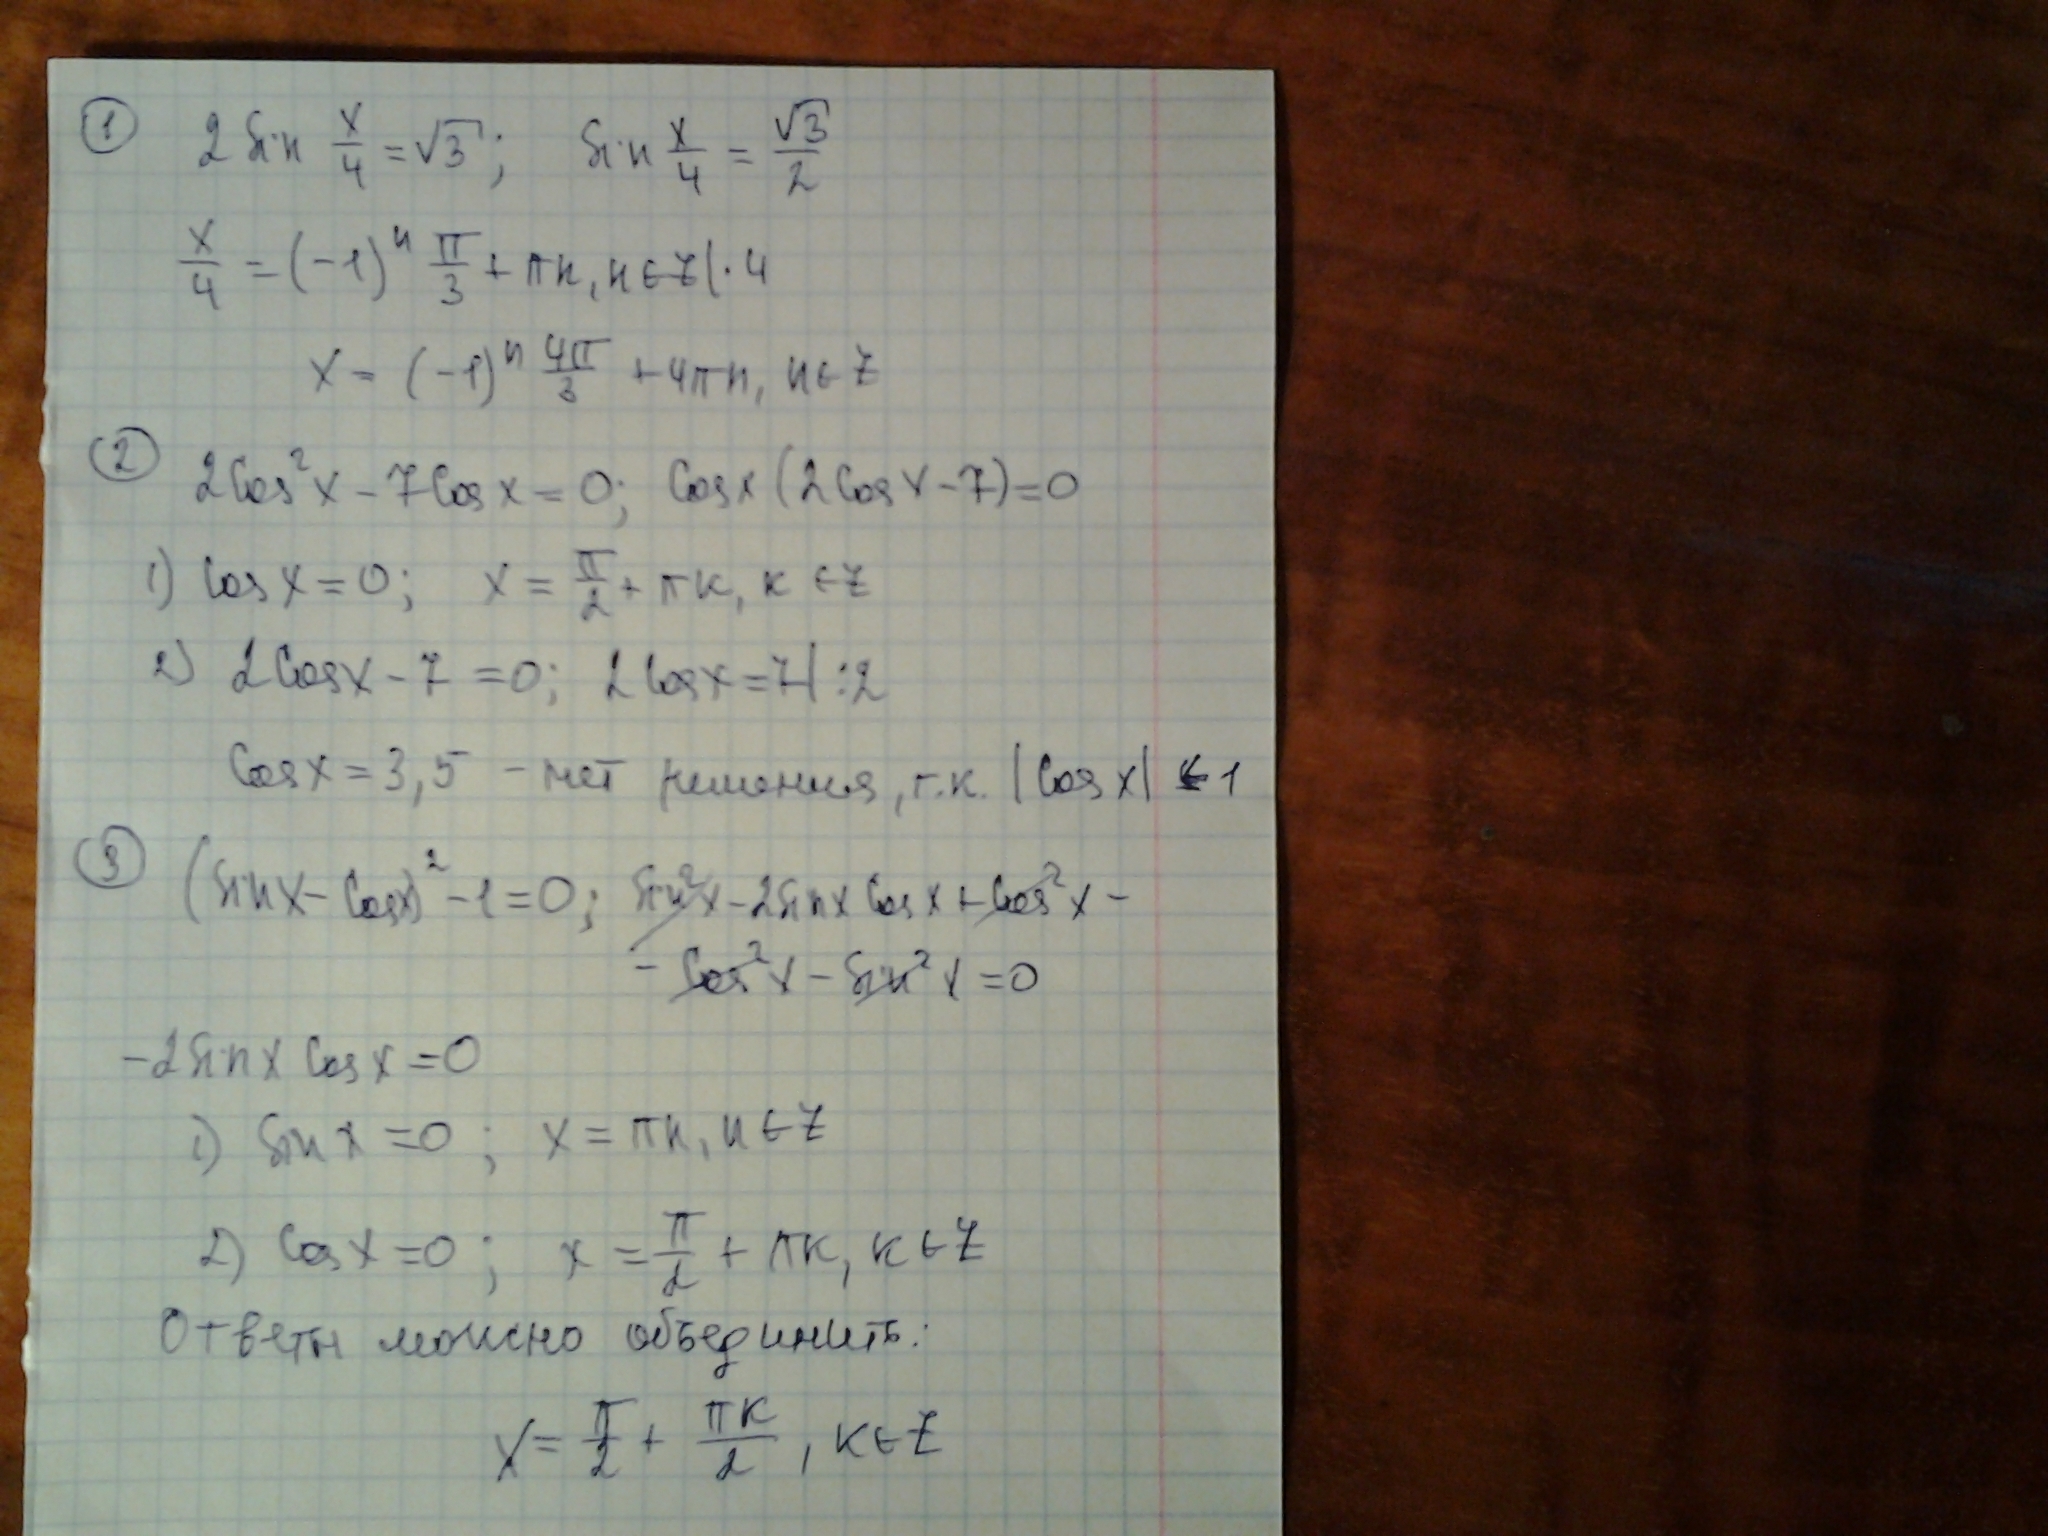 ① 2 sin x/4 = √3; sin x/4 = √3/2
x/4 = (-1)ⁿ π/3 + πn, n ∈ Z | · 4
x = (-1)ⁿ 4π/3 + 4πn, n ∈ Z
② 2cos²x - 7cos x = 0; cos x (2cos x - 7) = 0
1) cos x = 0; x = π/2 + πк, к ∈ Z
2) 2cos x - 7 = 0; 2cos x = 7 | :2
cos x = 3,5 - нет решения, т.к. |cos x| ≤ 1
③ (sin x - cos x)² - 1 = 0; sin²x - 2sin x cos x + cos²x -
- cos²x - sin²x = 0
-2sin x cos x = 0
1) sin x = 0; x = πn, n ∈ Z
2) cos x = 0; x = π/2 + πк, к ∈ Z
Ответы можно объединить:
x = π/2 + πк/2, к ∈ Z